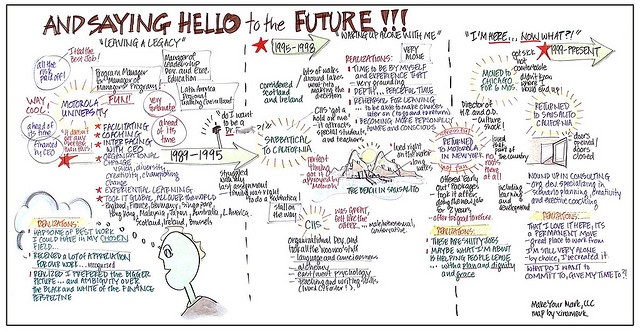 AND SAYING HELLO to the FUTURE!!!
"LEAVING A LEGACY"
I Had the Best Job!
all the risk paid off!
Program Manager for Manager of Managers Programs
Manager of Leadership Dev. and Exec. Education
Latin America Regional Training Consultant
FUN!
WAY COOL!
MOTOROLA UNIVERSITY
very fortunate
ahead of its time
ahead of its time
financed by CEO
FACILITATING
COACHING
INTERFACING WITH CEO
ORGANIZATIONAL CHANGE
vision, diversity
EXPERIENTIAL LEARNING
TOOK IT GLOBAL, ALL OVER THE WORLD
England, France, Germany, Singapore
Hong Kong, Malaysia, Japan, Australia, L. America
Scotland, Ireland, Brussels
1989-1995
do I want to be
Dr.
?!?
struggled
last assignment
thought was right
to do a Sabbatical
all the way
REALIZATIONS:
HAD SOME OF BEST WORK
I COULD HAVE IN MY CHOSEN
FIELD...
RECEIVED A LOT OF APPRECIATION
FOR OUR WORK... recognized
REALIZED I PREFERRED THE BIGGER
PICTURE... and AMBIGUITY OVER
THE BLACK and WHITE OF THE FINANCE
PERSPECTIVE
1995-1998
"WAKING UP ALONE WITH ME"
considered Scotland and Ireland
lots of walks around lakes went into making the decision
VERY ALONE
REALIZATIONS:
TIME TO BE BY MYSELF
and EXPERIENCE THAT
very grounding
DEPTH... PEACEFUL TIME
REHEARSAL FOR LEAVING
... to be able to make b/marks
later on (to go and transform)
BECOMING MORE PERSONALLY
AWARE and CONSCIOUS
CIIS 'got a hold on me'
it attracts special students and teachers
SABBATICAL TO CALIFORNIA
perfect timing
approved by Motorola
land right on the water
THE BEACH IN SAUSALITO
CIIS
was GREAT, felt like the other
male, heterosexual, conservative
organizational Dev. and
Tools all the 'woowoo' stuff
language and consciousness
alchemy
east/west psychology
teaching and writing skills
(loved Career!)
"I'M HERE... NOW WHAT?!"
1999-PRESENT
got sick
not comfortable
didn't know where I would end up!
MOVED TO CHICAGO FOR 6 MOS.
Director of H.R. and O.D.
culture shock!
RETURNED to MOTOROLA IN NEW YORK
not fun
loved that part of the country
no more home at all!
Offered 'Early Out' Packages
took it after
doing the new job
for 2 years
after to good fortune
including learning and development
REALIZATIONS:
THESE ARE SHITTY JOBS
MAYBE WHAT I'M ABOUT
IS HELPING PEOPLE LEAVE
... with a plan and dignity
and grace
RETURNED to SAUSALITO CALIFORNIA
doors opened / doors closed
WOUND UP IN CONSULTING
org. dev. specializing in
scenario planning, creativity
and executive coaching
REALIZATIONS:
THAT I LOVE IT HERE, IT'S
A PERMANENT MOVE
great place to work from
I'M STILL VERY ALONE
by choice, I recreated it
WHAT DO I WANT to
COMMIT TO, GIVE MY TIME TO?!
Make Your Mark, LLC
map by